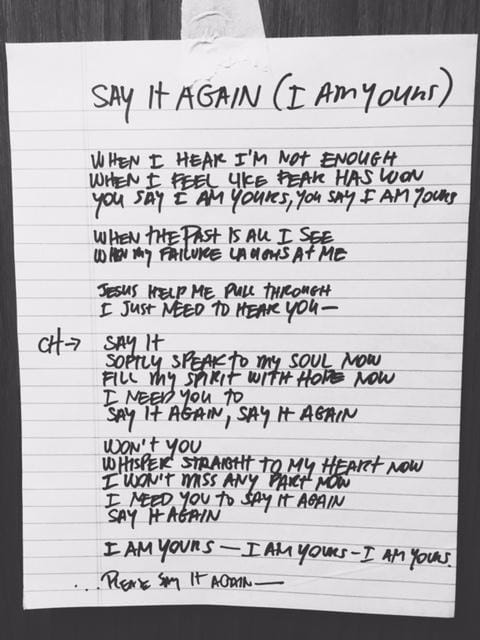 SAY IT AGAIN (I AM YOURS)
WHEN I HEAR I'M NOT ENOUGH
WHEN I FEEL LIKE FEAR HAS WON
YOU SAY I AM YOURS, YOU SAY I AM YOURS
WHEN THE PAST IS ALL I SEE
WHEN MY FAILURE LAUGHS AT ME
JESUS HELP ME PULL THROUGH
I JUST NEED TO HEAR YOU—
CH→ SAY IT
SOFTLY SPEAK TO MY SOUL NOW
FILL MY SPIRIT WITH HOPE NOW
I NEED YOU TO
SAY IT AGAIN, SAY IT AGAIN
WON'T YOU
WHISPER STRAIGHT TO MY HEART NOW
I WON'T MISS ANY PART NOW
I NEED YOU TO SAY IT AGAIN
SAY IT AGAIN
I AM YOURS — I AM YOURS - I AM YOURS.
... PLEASE SAY IT AGAIN —